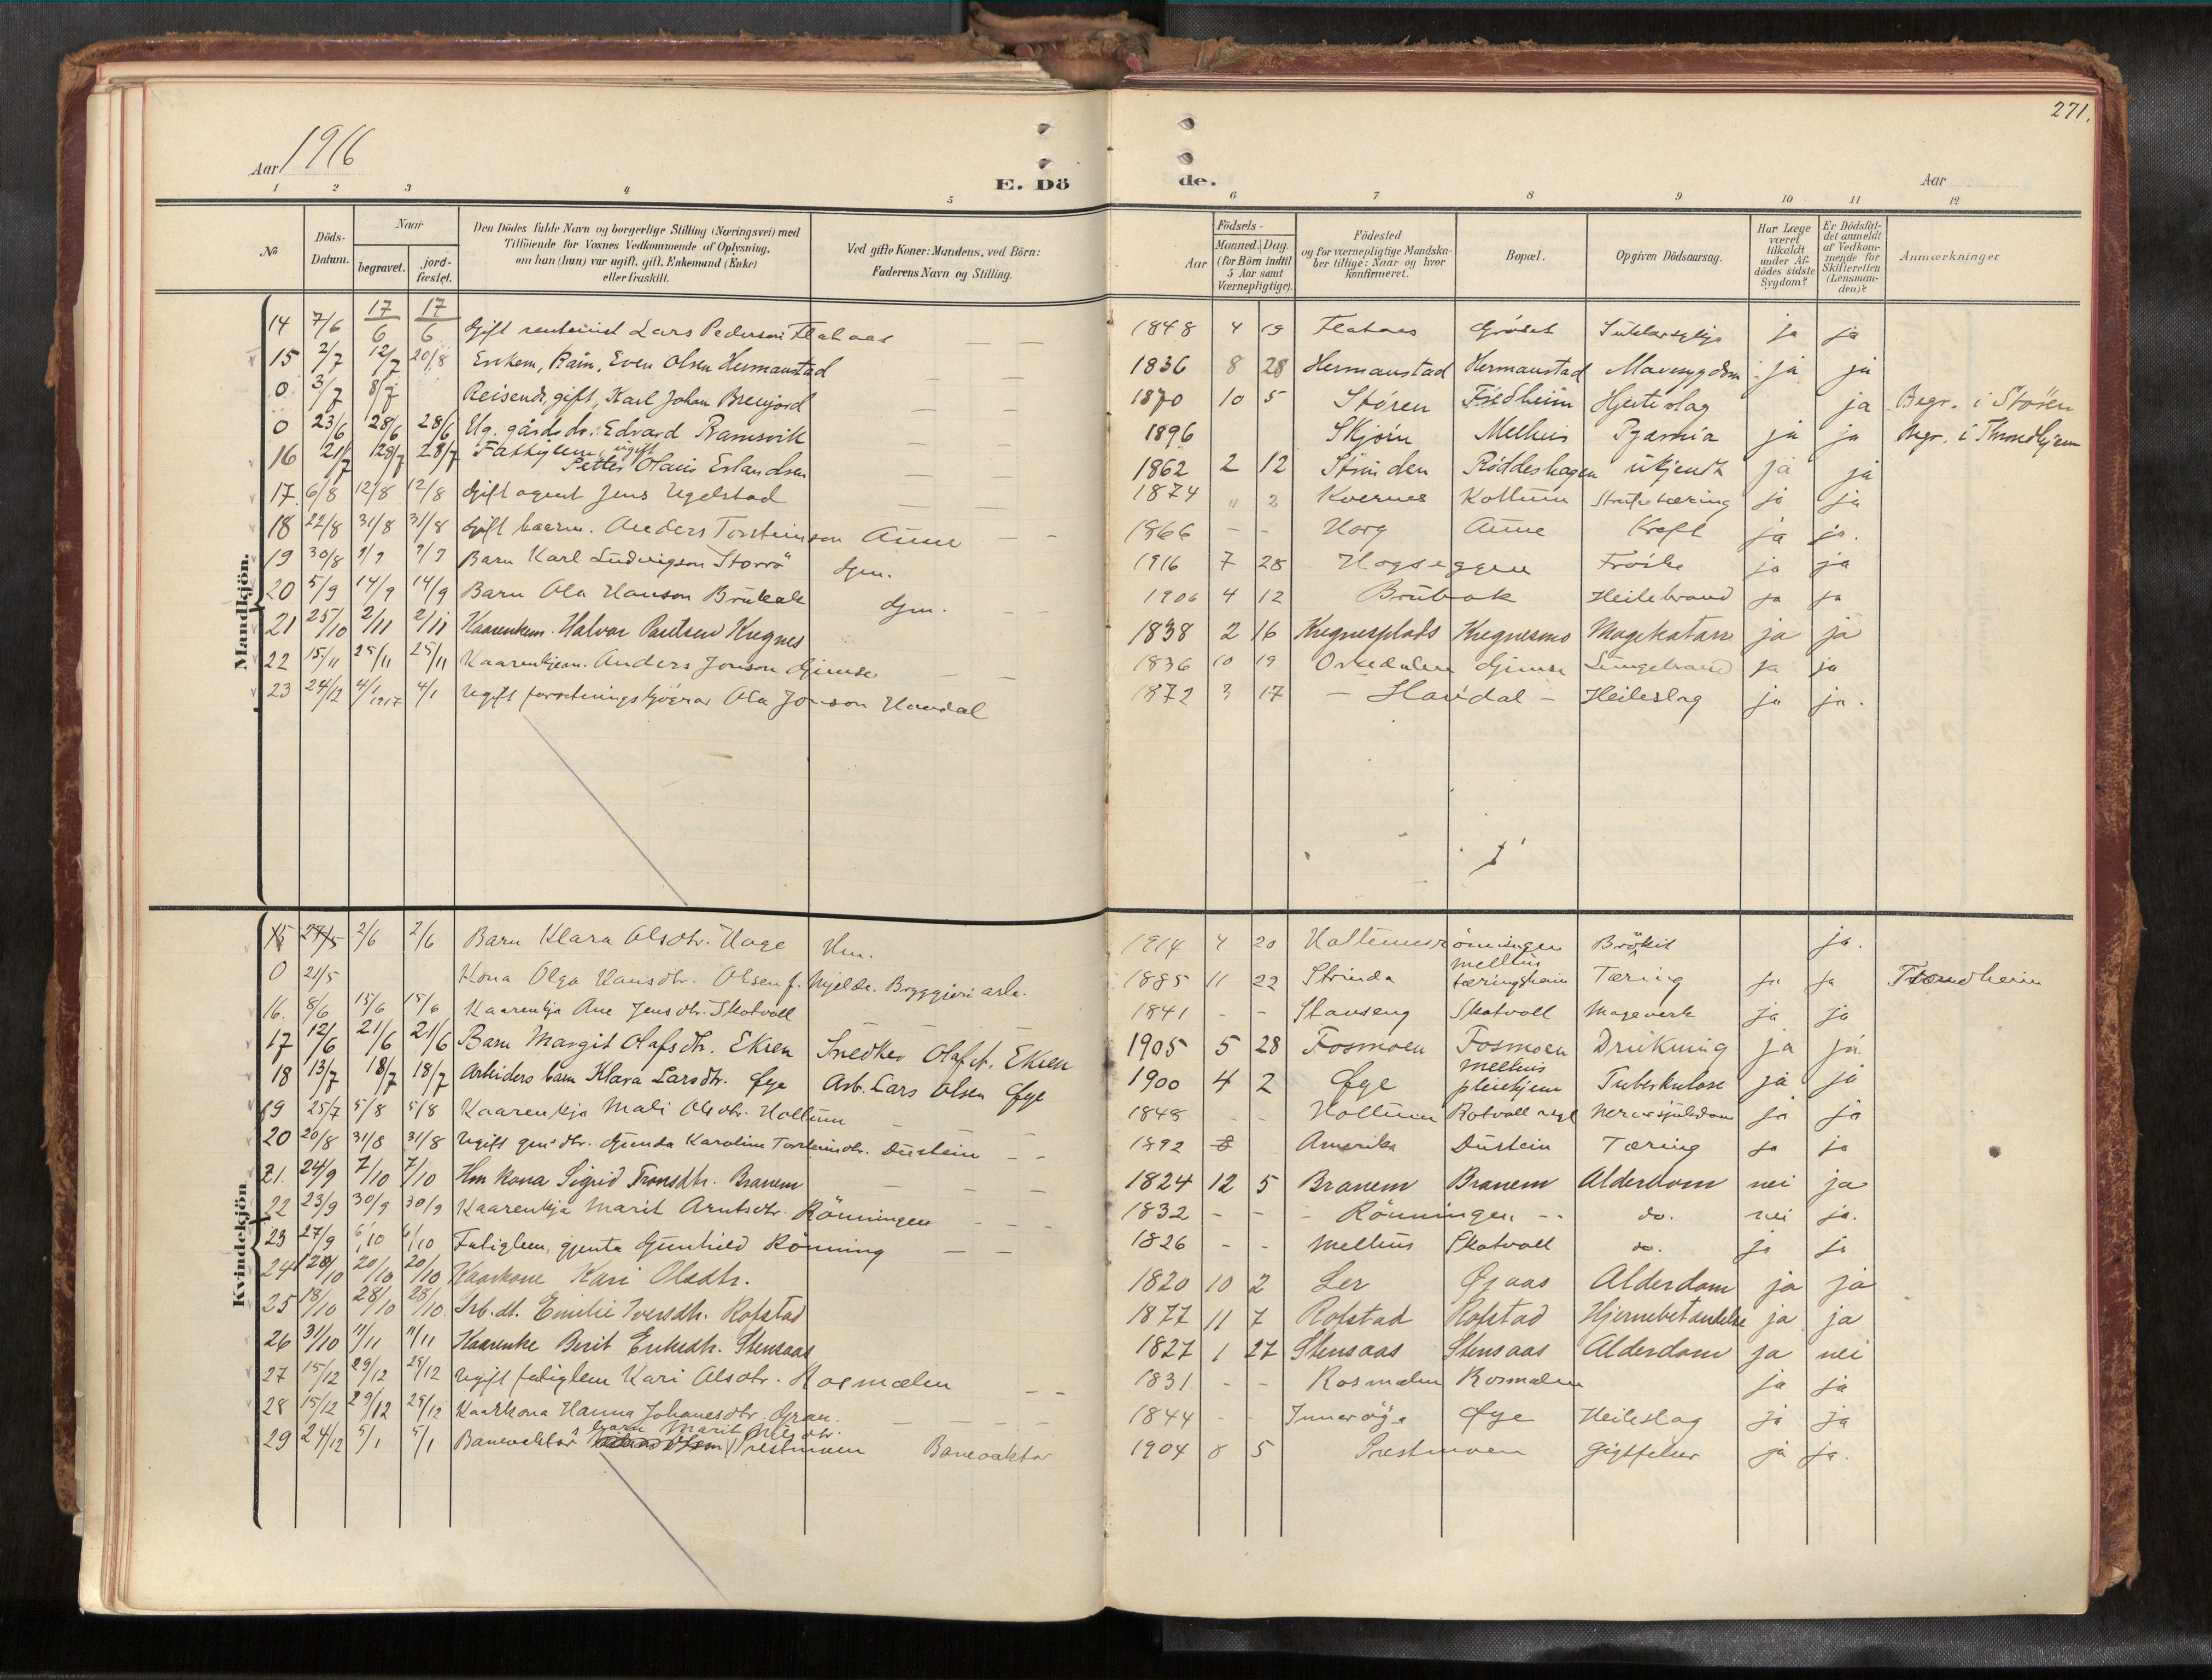 271.
Aar 1916
E. Dö de.
Aar
1 2 3 4 5 6 7 8 9 10 11 12
No
Döds-Datum.
Naar begravet. jordfæstet.
Den Dödes fulde Navn og borgerlige Stilling (Næringsvei) med Tilföiende for Voxnes Vedkommende af Oplysning, om han (hun) var ugift, gift, Enkemand (Enke) eller fraskilt.
Ved gifte Koner: Mandens, ved Börn: Faderens Navn og Stilling.
Födsels- Aar Maaned. Dag. (for Börn indtil 5 Aar samt Værnepligtige).
Födested og for værnepligtige Mandskaber tillige: Naar og hvor konfirmeret.
Bopæl.
Opgiven Dödsaarsag.
Har Læge været tilkaldt under Afdödes sidste Sygdom?
Er Dödsfaldet anmeldt af Vedkommende for Skifteretten (Lensmanden)?
Anmærkninger
Mandkjön.
14 7/6 17/6 17/6 Gift Lars Pedersen Flataas — — 1848 4 19 Flataas Gröset ja ja
15 2/7 12/7 20/8 Enkem, Even Olsen Hermanstad — — 1836 8 28 Hermanstad Hermanstad Mavesygdom ja ja
0 3/7 8/7 Reisende, gift, Karl Johan — — 1870 10 5 Støren Fredheim Hjerteslag ja Begr. i Støren
0 23/6 28/6 28/6 Ug. gårdsdr. Edvard Ramsvik — — 1896 Skjørn Melhus Pyæmia ja ja Begr. i Throndhjem
16 21/7 28/7 28/7 Fattiglem, ugift Petter Olaus Erlandsen — — 1862 2 12 Strinden Røddeshagen ukjendt ja ja
17. 6/8 12/8 12/8 Gift agent Jens Ugelstad — — 1874 " 2 Kvernes Kollum Strupetæring ja ja
18 22/8 31/8 31/8 Gift kaarm. Anders Torsteinson Aune — — 1866 - - Horg Aune Kreft ja ja.
19 30/8 9/9 9/9 Barn Karl Ludvigson Storrö Gm. 1916 7 28 Hogseggen Fröike ja ja
20 5/9 14/9 14/9 Barn Ola Hanson Brubak Gm. — — 1906 4 12 Brubak Heilebrand ja ja
21 25/10 2/11 2/11 Kaarenkem. Halvor Paulsen Kregnes 1838 2 16 Kregnesplads Kregnesmo Magekatarr ja ja
22 15/11 25/11 25/11 Kaarenkjem. Anders Jonson Gimse — — 1836 10 19 Orkedalen Gimse Lungebrand ja ja
23 24/12 4/1 1917 4/1 Ugift forretningskjörar Ola Jonson Havdal 1872 3 17 - Havdal - Heileslag ja ja.
Kvindekjön
15 27/5 2/6 2/6 Barn Klara Olsdtr. Hage Hm. 1914 4 20 Hollumsrönningen Brökit ja.
0 21/5 Kona Olga Hansdtr. Olsen f. Mjelde. Bryggjeri arb. 1885 11 22 Strinda Melhus tæringsheim Tæring ja ja Trondheim
16. 8/6 15/6 15/6 Kaarenkja Ane Jensdtr. Skotvoll — — 1841 - - Stavseng Skotvoll Mageverk ja ja
17 12/6 21/6 21/6 Barn Margit Olafsdtr. Ekren Snedker Olaf A. Ekren 1905 5 28 Fosmoen Fosmoen Drukning ja ja
18 13/7 18/7 18/7 Arbeiders barn Klara Larsdtr. Øye Arb. Lars Olsen Øye 1900 4 2 Øye Melhus pleiehjem Tuberkulose ja ja
19 25/7 5/8 5/8 Kaarenkja Mali Olsdtr. Hollum — 1848 - - Hollum Rotvoll asyl Nervesjukdom ja ja
20 20/8 31/8 31/8 Ugift gm's dtr. Gunda Karoline Torsteinsdtr. Dustein — — 1892 8 Amerika Dustein Tæring ja ja
21. 24/9 7/10 7/10 Hm kona Sigrid Tronsdtr. Branem — — 1824 12 5 Branem Branem Alderdom nei ja
22 23/9 30/9 30/9 Kaarenkja Marit Arntsdtr. Rönningen — — 1832 - - - Rönningen - - do. nei ja.
23 27/9 6/10 6/10 Fatiglem, gjenta Gunhild Rönning — — 1826 - - Melhus Skotvoll do. ja ja
24 12/10 20/10 20/10 Kaarkone Kari Olsdtr. 1820 10 2 Ler Øjaas Alderdom ja ja
25 18/10 28/10 28/10 Arb. dt. Emilie Iversdtr. Rofstad 1877 11 7 Rofstad Rofstad Hjernebetændelse ja ja
26 31/10 11/11 11/11 Kaarenke Berit Eriksdtr. Stensaas 1827 1 27 Stensaas Stensaas Alderdom ja nei
27 15/12 29/12 29/12 Ugift fatiglem Kari Olsdtr. Rosmælen — — 1831 - - Rosmælen Rosmælen ja ja
28 15/12 29/12 29/12 Kaarkona Hanna Johanesdtr. Gran. — — 1844 - - Inneröya Øye Heileslag ja ja
29 24/12 5/1 5/1 Banevaktar's barn Marit Nilsdtr. Prestmoen Banevaktar 1904 8 5 Prestmoen Giftfeber ja ja.